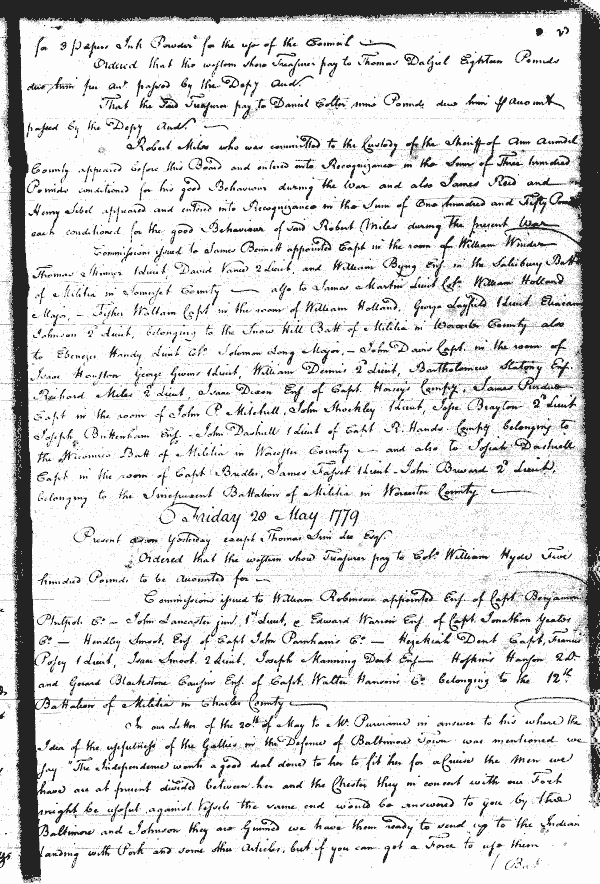 for 3 papers Ink Powder for the use of the Council
Ordered that the western shore Treasurer pay to Thomas Dalziel Eighteen Pounds
due him per acct passed by the Depy Aud.
That the said Treasurer pay to Daniel nine Pounds due him Account
passed by the Depy Aud.
Robert Miles who was committed to the Custody of the Sheriff of Ann Arundel
County appeared before this Board and entered into Recognizance in the Sum of Three hundred
Pounds conditioned for his good Behaviour during the War and also James Reed and
Henry Sibel appeared and entered into Recognizance in the Sum of One hundred and Fifty
each conditioned for the good Behaviour of said Robert Miles during the present War
Commissions issued to James Bennett appointed Capt in the room of William Winder
Thomas 1 Lieut, David Vance 2 Lieut, and William Byng Ens. in the Salisbury Batt
of Militia in Somerset County also to James Martin Lieut Col. William Holland
Major, - Fisher William Capt in the room of William Holland, George Layfield 1 Lieut.
Johnson 2d Lieut, belonging to the Snow Hill Batt of Militia in Worcester County also
to Ebenezer Handy Lieut Col. Solomon Long Major, - John Davis Capt. in the room of
Isaac Houston George Givens 1 Lieut, William Dennis 2d Lieut, Bartholomew Slatony Ens.
Richard Miles 2d Lieut, Isaac Dixon Ens of Capt. Horsey's Compy, James Purdue
Capt in the room of John P Mitchell, John Shockley 1 Lieut, Brayton 2d Lieut
Joseph Bittenham Ens - John Dashiell 1 Lieut of Capt R. Hands Compy belonging to
the Wicomico Batt of Militia in Worcester County and also to Josiah Dashiell
Capt in the room of Capt James Fasset 1 Lieut - John 2d Lieut,
belonging to the Sinepuxent Battalion of Militia in Worcester County
Friday 28 May 1779
Present as on Yesterday except Thomas Sim Lee Esqr.
Ordered that the western shore Treasurer pay to Colo. William Hyde Five
hundred Pounds to be accounted for
Commissions issued to William Robinson appointed Ens. of Capt. Benjamin
Philpots Co - John Lancaster junr. 1st Lieut, Edward Warren Ens. of Capt. Jonathan Yeates
Co - Hendley Smoot, Ens of Capt John Parnham's Co - Hezekiah Dent Capt, Francis
Posey 1 Lieut, Isaac Smoot, 2 Lieut, Joseph Manning Dent Ens - Hoskins Hanson 2 Lt
and Gerard Blackstone Causin Ens. of Capt. Walter Hanson's Co belonging to the 12th
Battalion of Militia in Charles County
In our Letter of the 20th of May to Mr. Purviance in answer to his where the
Idea of the usefulness of the Gallies in the Defence of Baltimore Town was mentioned we
say "The Independence wants a good deal done to her to fit her for a Cruise the Men we
have are at present divided between her and the Chester they in concert with our Fort
might be useful against Vessels the same end would be answered to you by the
Baltimore and Johnson they are Gunned we have them ready to send up to the Indian
Landing with Pork and some other Articles, but if you can get a Force to use them